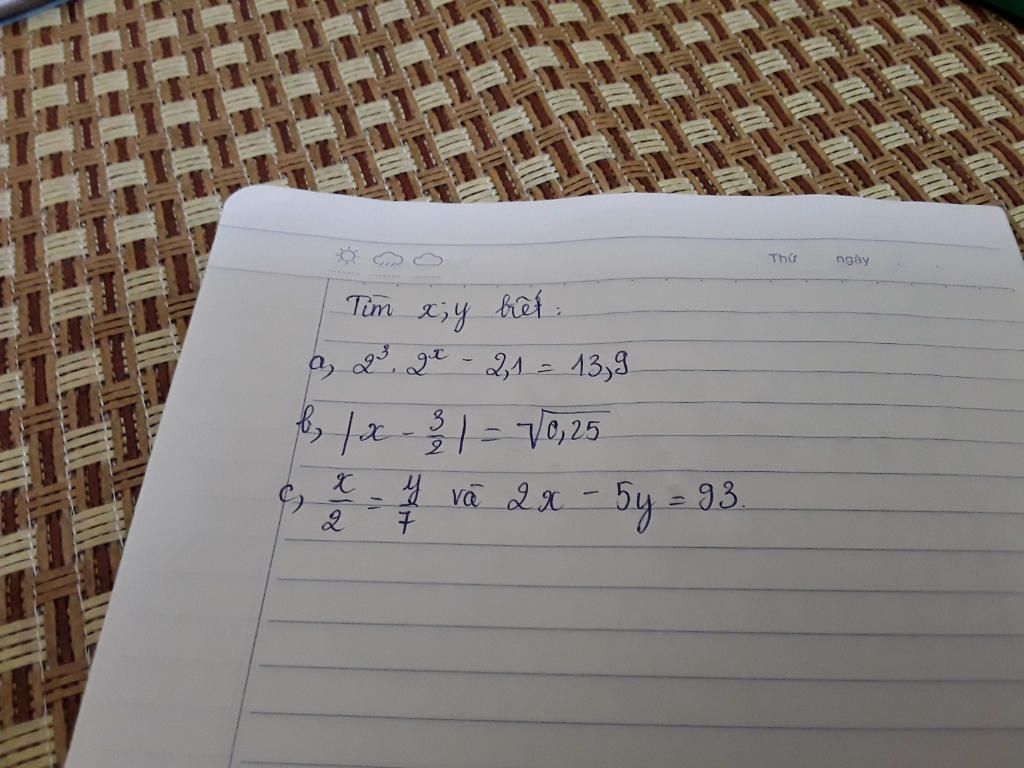 Thứ ngày
Tìm x; y biết:
a, 2³ . 2ˣ - 2,1 = 13,9
b, | x - 3/2 | = √0,25
c, x/2 = y/7 và 2x - 5y = 93.